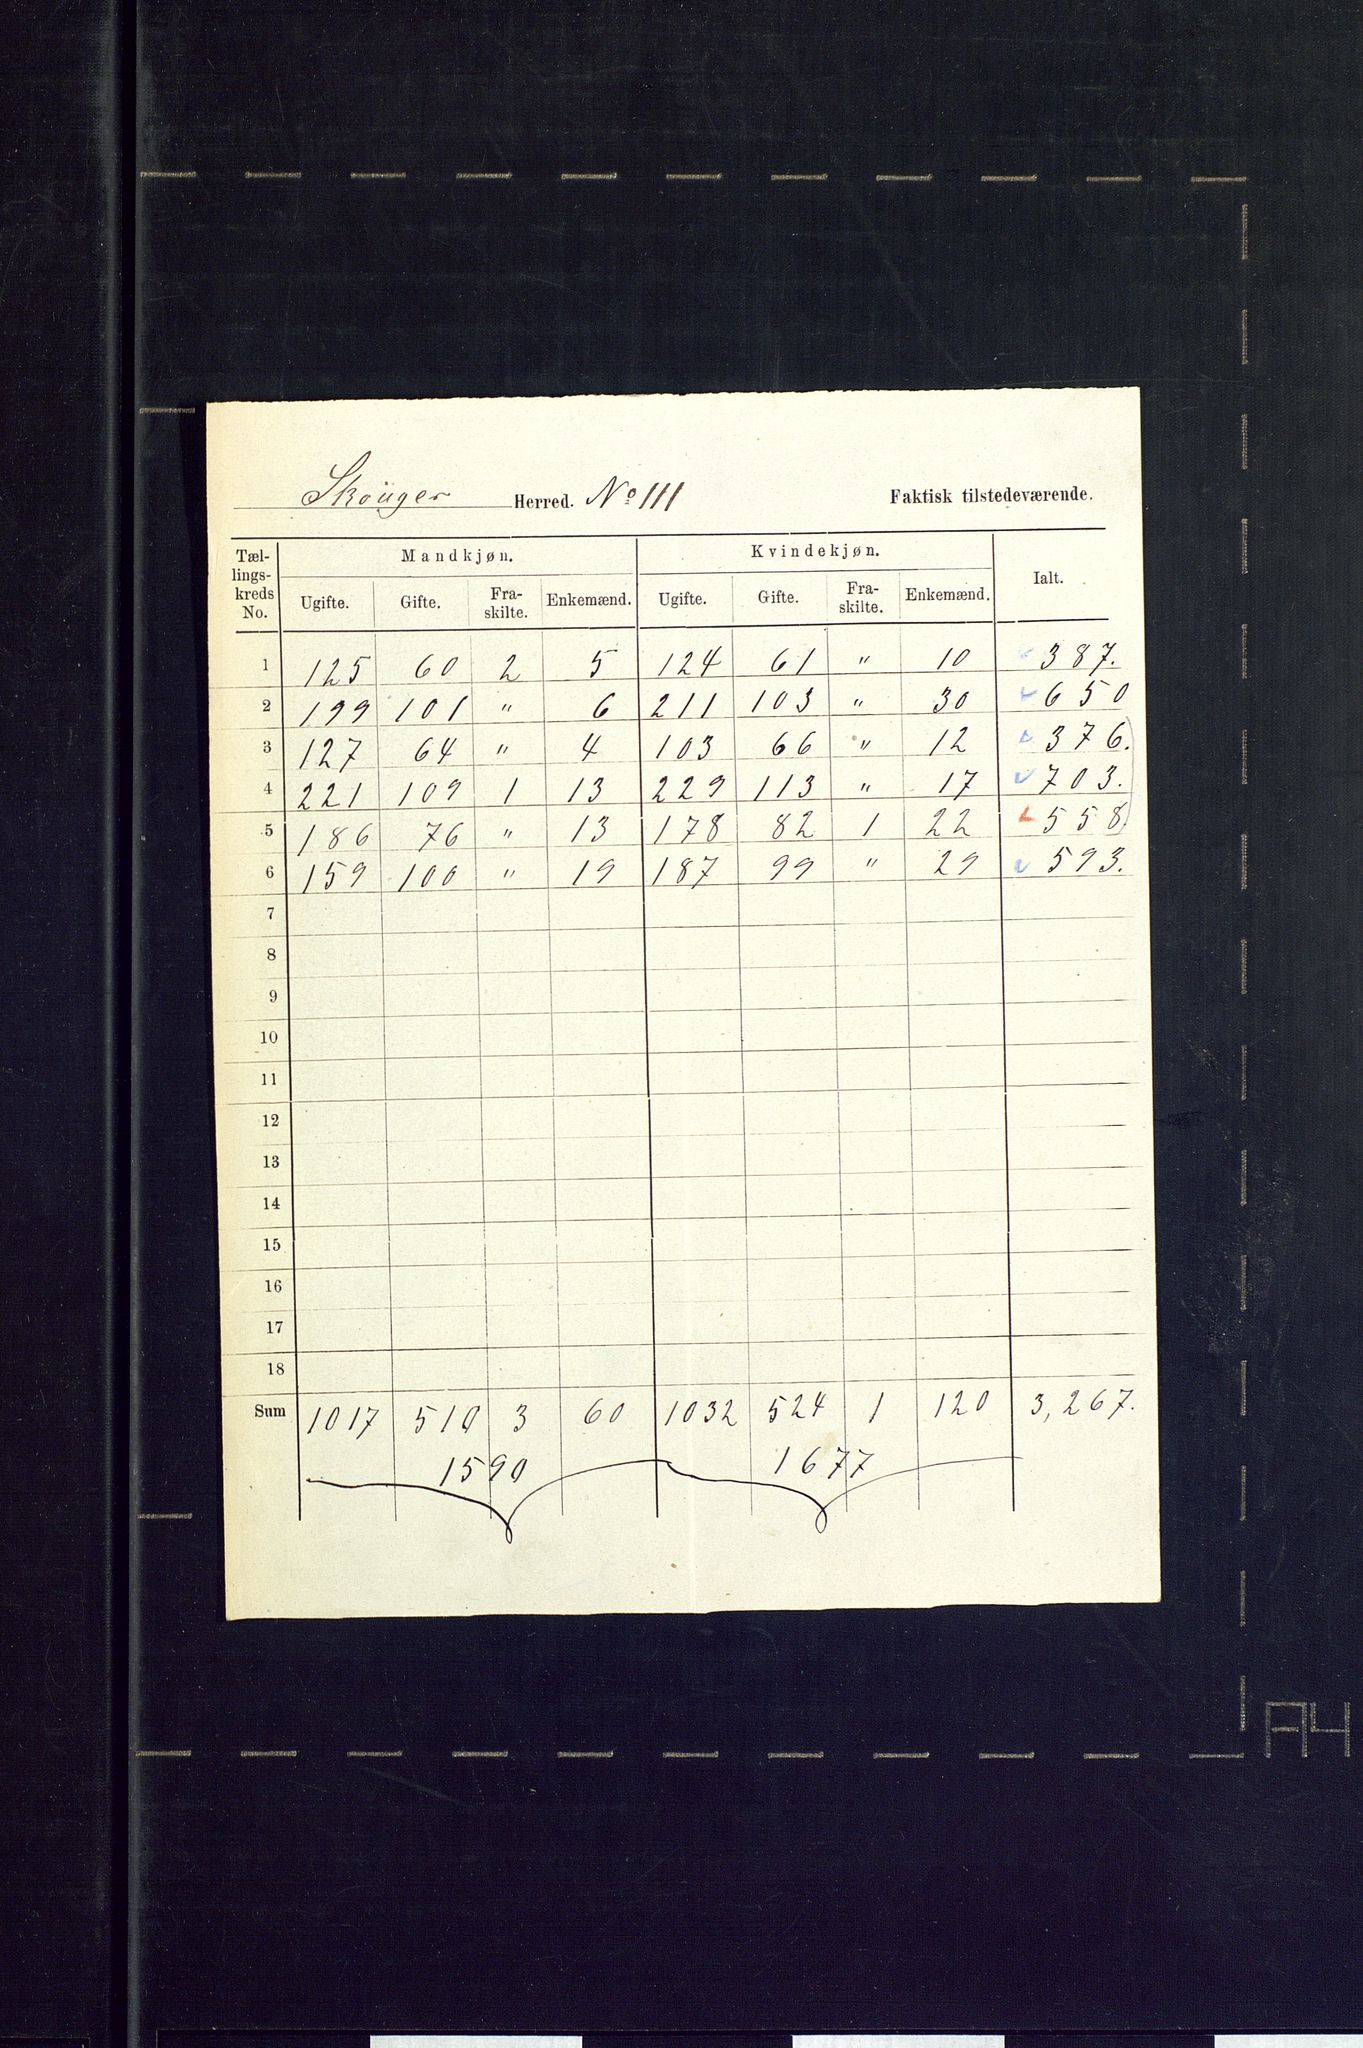 Skouger Herred. No 111 Faktisk tilstedeværende.
Tællingskreds No. Mandkjøn. Kvindekjøn. Ialt.
Ugifte. Gifte. Fraskilte. Enkemænd. Ugifte. Gifte. Fraskilte. Enkemænd.
1 125 60 2 5 124 61 " 10 387.
2 199 101 " 6 211 103 " 30 650
3 127 64 " 4 103 66 " 12 376.
4 221 109 1 13 229 113 " 17 703.
5 186 76 " 13 178 82 1 22 558
6 159 100 " 19 187 99 " 29 593.
7
8
9
10
11
12
13
14
15
16
17
18
Sum 1017 510 3 60 1032 524 1 120 3,267.
1590 1677
A4